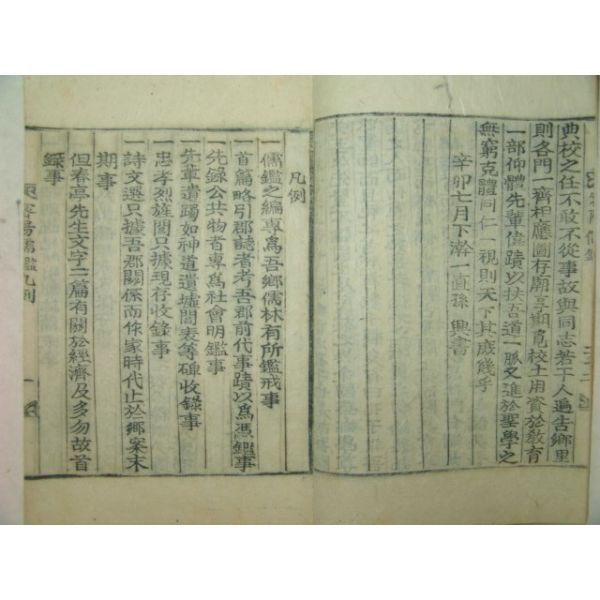 典校之任不敢不從事故與同志若干人遍告鄉里
則各門一齊相應圖存廟享期覓校士用資於敎育
一部仰體先輩偉蹟以扶吾道一脈又進於聖學之
無窮克體同仁一視則天下其庶幾乎
辛卯七月下澣一直孫 興書
凡例
一儒鑑之編專爲吾鄕儒林有所鑑戒事
首篇略引郡誌者考吾郡前代事蹟以爲憑鑑事
先錄公共物者專爲社會明鑑事
一先輩遺躅如神道遺墟閭表等碑收錄事
一忠孝烈旌閭只據現存收錄事
詩文選只據吾郡關係而作家時代止於鄕案末
期事
但春亭先生文字二篇有關於經濟及多勿故首
錄事
儒鑑凡例
一